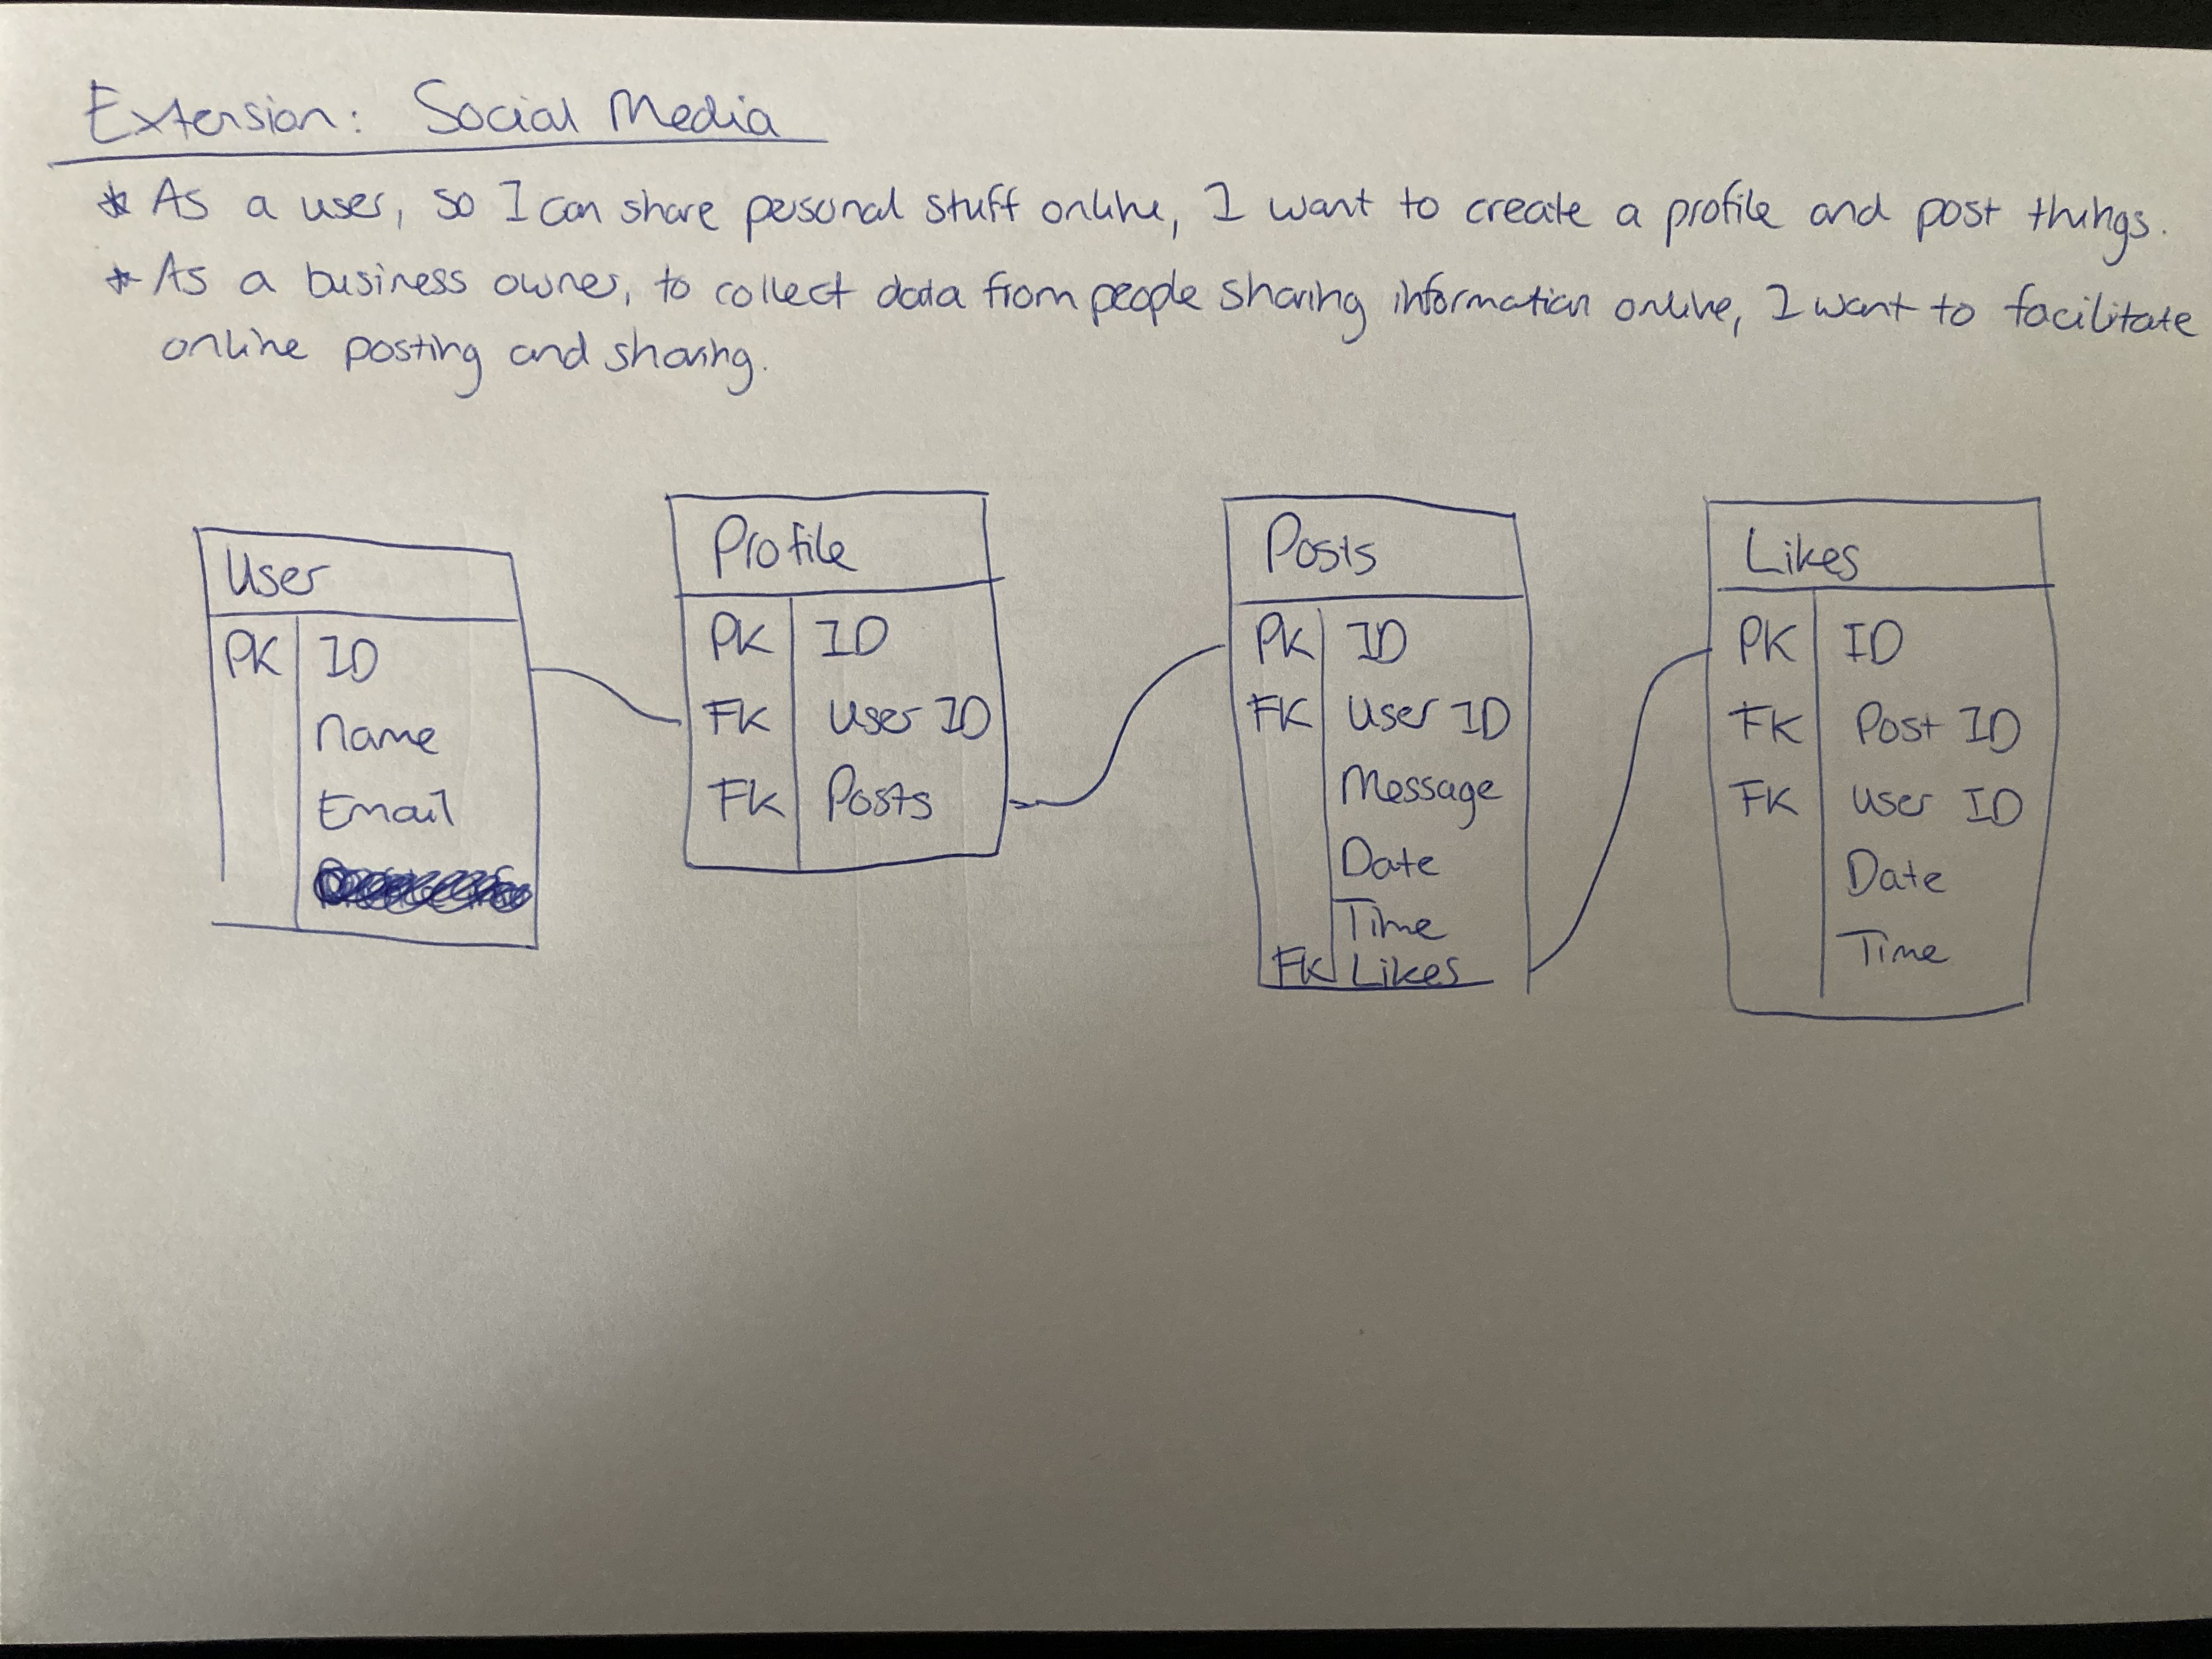 Extension: Social Media
* As a user, so I can share personal stuff online, I want to create a profile and post things.
* As a business owner, to collect data from people sharing information online, I want to facilitate
online posting and sharing.
User
PK ID
Name
Email
Profile
PK ID
FK User ID
FK Posts
Posts
PK ID
FK User ID
Message
Date
Time
FK Likes
Likes
PK ID
FK Post ID
FK User ID
Date
Time